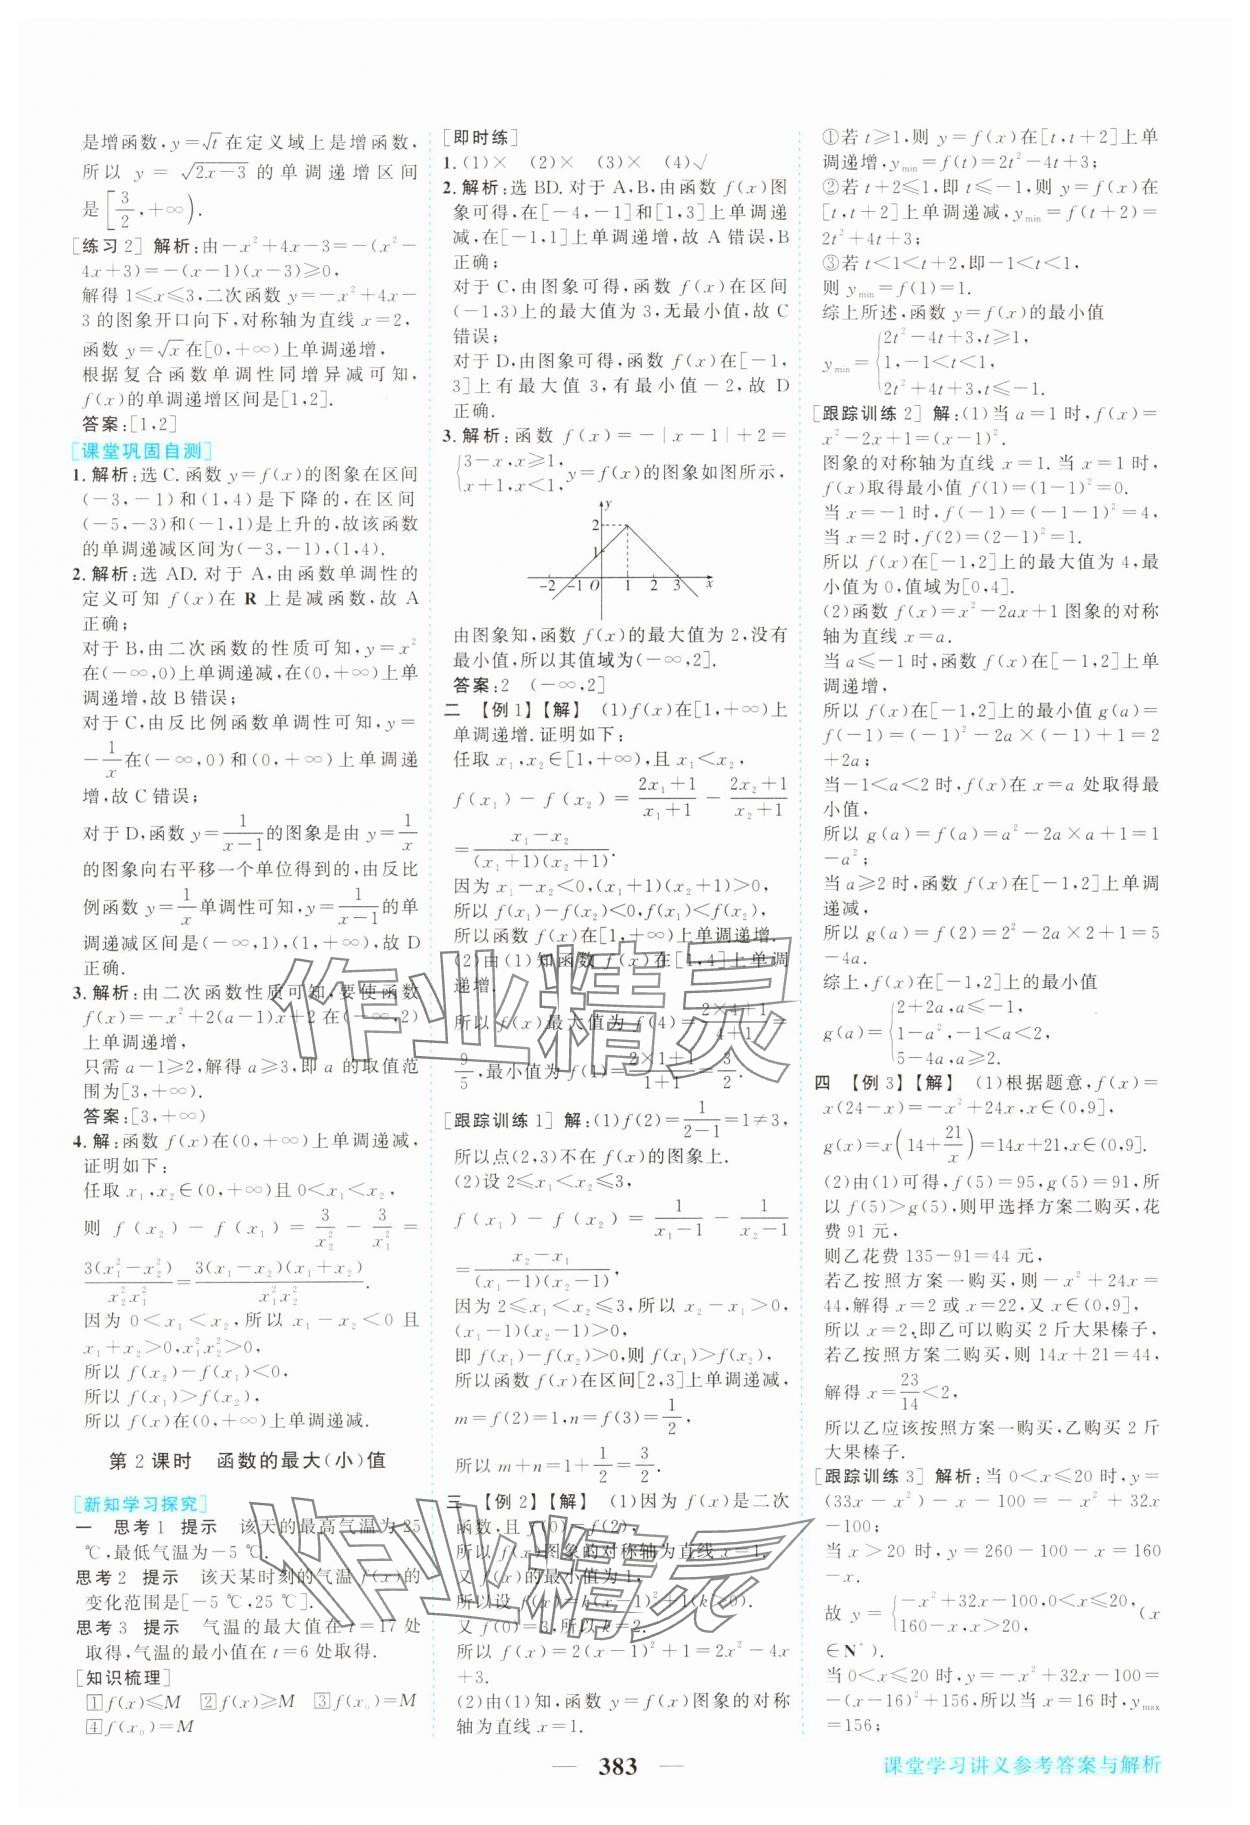 是增函数,y=√t在定义域上是增函数,
所以 y = √(2x-3) 的单调递增区间
是[3/2,+∞).
[练习2] 解析:由-x²+4x-3=-(x²-
4x+3)=-(x-1)(x-3)≥0,
解得1≤x≤3,二次函数y=-x²+4x-
3的图象开口向下,对称轴为直线x=2,
函数y=√x在[0,+∞)上单调递增,
根据复合函数单调性同增异减可知,
f(x)的单调递增区间是[1,2].
答案:[1,2]
[课堂巩固自测]
1.解析:选C.函数y=f(x)的图象在区间
(-3,-1)和(1,4)是下降的,在区间
(-5,-3)和(-1,1)是上升的,故该函数
的单调递减区间为(-3,-1),(1,4).
2.解析:选AD.对于A,由函数单调性的
定义可知f(x)在R上是减函数,故A
正确;
对于B,由二次函数的性质可知,y=x²
在(-∞,0)上单调递减,在(0,+∞)上单
调递增,故B错误;
对于C,由反比例函数单调性可知,y=
-1/x在(-∞,0)和(0,+∞)上单调递
增,故C错误;
对于D,函数y=1/(x-1)的图象是由y=1/x
的图象向右平移一个单位得到的,由反比
例函数y=1/x单调性可知,y=1/(x-1)的单
调递减区间是(-∞,1),(1,+∞),故D
正确.
3.解析:由二次函数性质可知,要使函数
f(x)=-x²+2(a-1)x+2在(-∞,2)
上单调递增,
只需a-1≥2,解得a≥3,即a的取值范
围为[3,+∞).
答案:[3,+∞)
4.解:函数f(x)在(0,+∞)上单调递减,
证明如下:
任取x₁,x₂∈(0,+∞)且0<x₁<x₂,
则 f(x₂)-f(x₁)=3/x₂²-3/x₁²=
3(x₁²-x₂²)/(x₂²x₁²)=3(x₁-x₂)(x₁+x₂)/(x₁²x₂²).
因为0<x₁<x₂,所以x₁-x₂<0且
x₁+x₂>0,x₁²x₂²>0,
所以f(x₂)-f(x₁)<0,
所以f(x₁)>f(x₂),
所以f(x)在(0,+∞)上单调递减.
第2课时 函数的最大(小)值
[新知学习探究]
一 思考1 提示 该天的最高气温为25
℃,最低气温为-5 ℃.
思考2 提示 该天某时刻的气温f(x)的
变化范围是[-5 ℃,25 ℃].
思考3 提示 气温的最大值在t=17处
取得,气温的最小值在t=6处取得.
[知识梳理]
1 f(x)≤M 2 f(x)≥M 3 f(x₀)=M
4 f(x₀)=M
[即时练]
1.(1)× (2)× (3)× (4)√
2.解析:选BD.对于A,B,由函数f(x)图
象可得,在[-4,-1]和[1,3]上单调递
减,在[-1,1]上单调递增,故A错误,B
正确;
对于C,由图象可得,函数f(x)在区间
(-1,3)上的最大值为3,无最小值,故C
错误;
对于D,由图象可得,函数f(x)在[-1,
3]上有最大值3,有最小值-2,故D
正确.
3.解析:函数 f(x)=-|x-1|+2=
{3-x,x≥1,
x+1,x<1, y=f(x)的图象如图所示,
y
2
1
-2 -1 O 1 2 3 4 x
由图象知,函数f(x)的最大值为2,没有
最小值,所以其值域为(-∞,2].
答案:2 (-∞,2]
二 【例1】【解】 (1)f(x)在[1,+∞)上
单调递增.证明如下:
任取x₁,x₂∈[1,+∞),且x₁<x₂,
f(x₁)-f(x₂)=(2x₁+1)/(x₁+1)-(2x₂+1)/(x₂+1)
=(x₁-x₂)/((x₁+1)(x₂+1)).
因为x₁-x₂<0,(x₁+1)(x₂+1)>0,
所以f(x₁)-f(x₂)<0,f(x₁)<f(x₂),
所以函数f(x)在[1,+∞)上单调递增.
(2)由(1)知函数f(x)在[1,4]上单调
递增.
所以f(x)最大值为f(4)=(2×4+1)/(4+1)=
9/5,最小值为f(1)=(2×1+1)/(1+1)=3/2.
[跟踪训练1] 解:(1)f(2)=1/(2-1)=1≠3,
所以点(2,3)不在f(x)的图象上.
(2)设2≤x₁<x₂≤3,
f(x₁)-f(x₂)=1/(x₁-1)-1/(x₂-1)
=(x₂-x₁)/((x₁-1)(x₂-1)),
因为2≤x₁<x₂≤3,所以x₂-x₁>0,
(x₁-1)(x₂-1)>0,
即f(x₁)-f(x₂)>0,则f(x₁)>f(x₂),
所以函数f(x)在区间[2,3]上单调递减,
m=f(2)=1,n=f(3)=1/2,
所以m+n=1+1/2=3/2.
三 【例2】【解】 (1)因为f(x)是二次
函数,且f(0)=f(2),
所以f(x)图象的对称轴为直线x=1.
又f(x)的最小值为1,
所以设f(x)=k(x-1)²+1(k>0).
又f(0)=3,所以k=2.
所以f(x)=2(x-1)²+1=2x²-4x
+3.
(2)由(1)知,函数f(x)图象的对称
轴为直线x=1.
①若t≥1,则y=f(x)在[t,t+2]上单
调递增,yₘᵢₙ=f(t)=2t²-4t+3;
②若t+2≤1,即t≤-1,则y=f(x)在
[t,t+2]上单调递减,yₘᵢₙ=f(t+2)=
2t²+4t+3;
③若t<1<t+2,即-1<t<1,
则yₘᵢₙ=f(1)=1.
综上所述,函数y=f(x)的最小值
yₘᵢₙ={2t²-4t+3,t≥1,
1,-1<t<1,
2t²+4t+3,t≤-1.
[跟踪训练2] 解:(1)当a=1时,f(x)=
x²-2x+1=(x-1)².
图象的对称轴为直线x=1.当x=1时,
f(x)取得最小值f(1)=(1-1)²=0.
当x=-1时,f(-1)=(-1-1)²=4,
当x=2时,f(2)=(2-1)²=1.
所以f(x)在[-1,2]上的最大值为4,最
小值为0,值域为[0,4].
(2)函数f(x)=x²-2ax+1图象的对称
轴为直线x=a.
当a≤-1时,函数f(x)在[-1,2]上单
调递增,
所以f(x)在[-1,2]上的最小值g(a)=
f(-1)=(-1)²-2a×(-1)+1=2
+2a;
当-1<a<2时,f(x)在x=a处取得最
小值,
所以g(a)=f(a)=a²-2a×a+1=1
-a²;
当a≥2时,函数f(x)在[-1,2]上单调
递减,
所以g(a)=f(2)=2²-2a×2+1=5
-4a.
综上,f(x)在[-1,2]上的最小值
g(a)={2+2a,a≤-1,
1-a²,-1<a<2,
5-4a,a≥2.
四 【例3】【解】 (1)根据题意,f(x)=
x(24-x)=-x²+24x,x∈(0,9],
g(x)=x(14+21/x)=14x+21,x∈(0,9].
(2)由(1)可得,f(5)=95,g(5)=91,所
以f(5)>g(5),则甲选择方案二购买,花
费91元,
则乙花费135-91=44元,
若乙按照方案一购买,则-x²+24x=
44,解得x=2或x=22,又x∈(0,9],
所以x=2,即乙可以购买2斤大果榛子;
若乙按照方案二购买,则14x+21=44,
解得x=23/14<2,
所以乙应该按照方案一购买,乙购买2斤
大果榛子.
[跟踪训练3] 解析:当0<x≤20时,y=
(33x-x²)-x-100=-x²+32x
-100;
当x>20时,y=260-100-x=160
-x.
故y={-x²+32x-100,0<x≤20,
160-x,x>20 (x
∈N*).
当0<x≤20时,y=-x²+32x-100=
-(x-16)²+156,所以当x=16时,yₘₐₓ
=156;
— 383 —
课堂学习讲义参考答案与解析
作业精灵
作业精灵